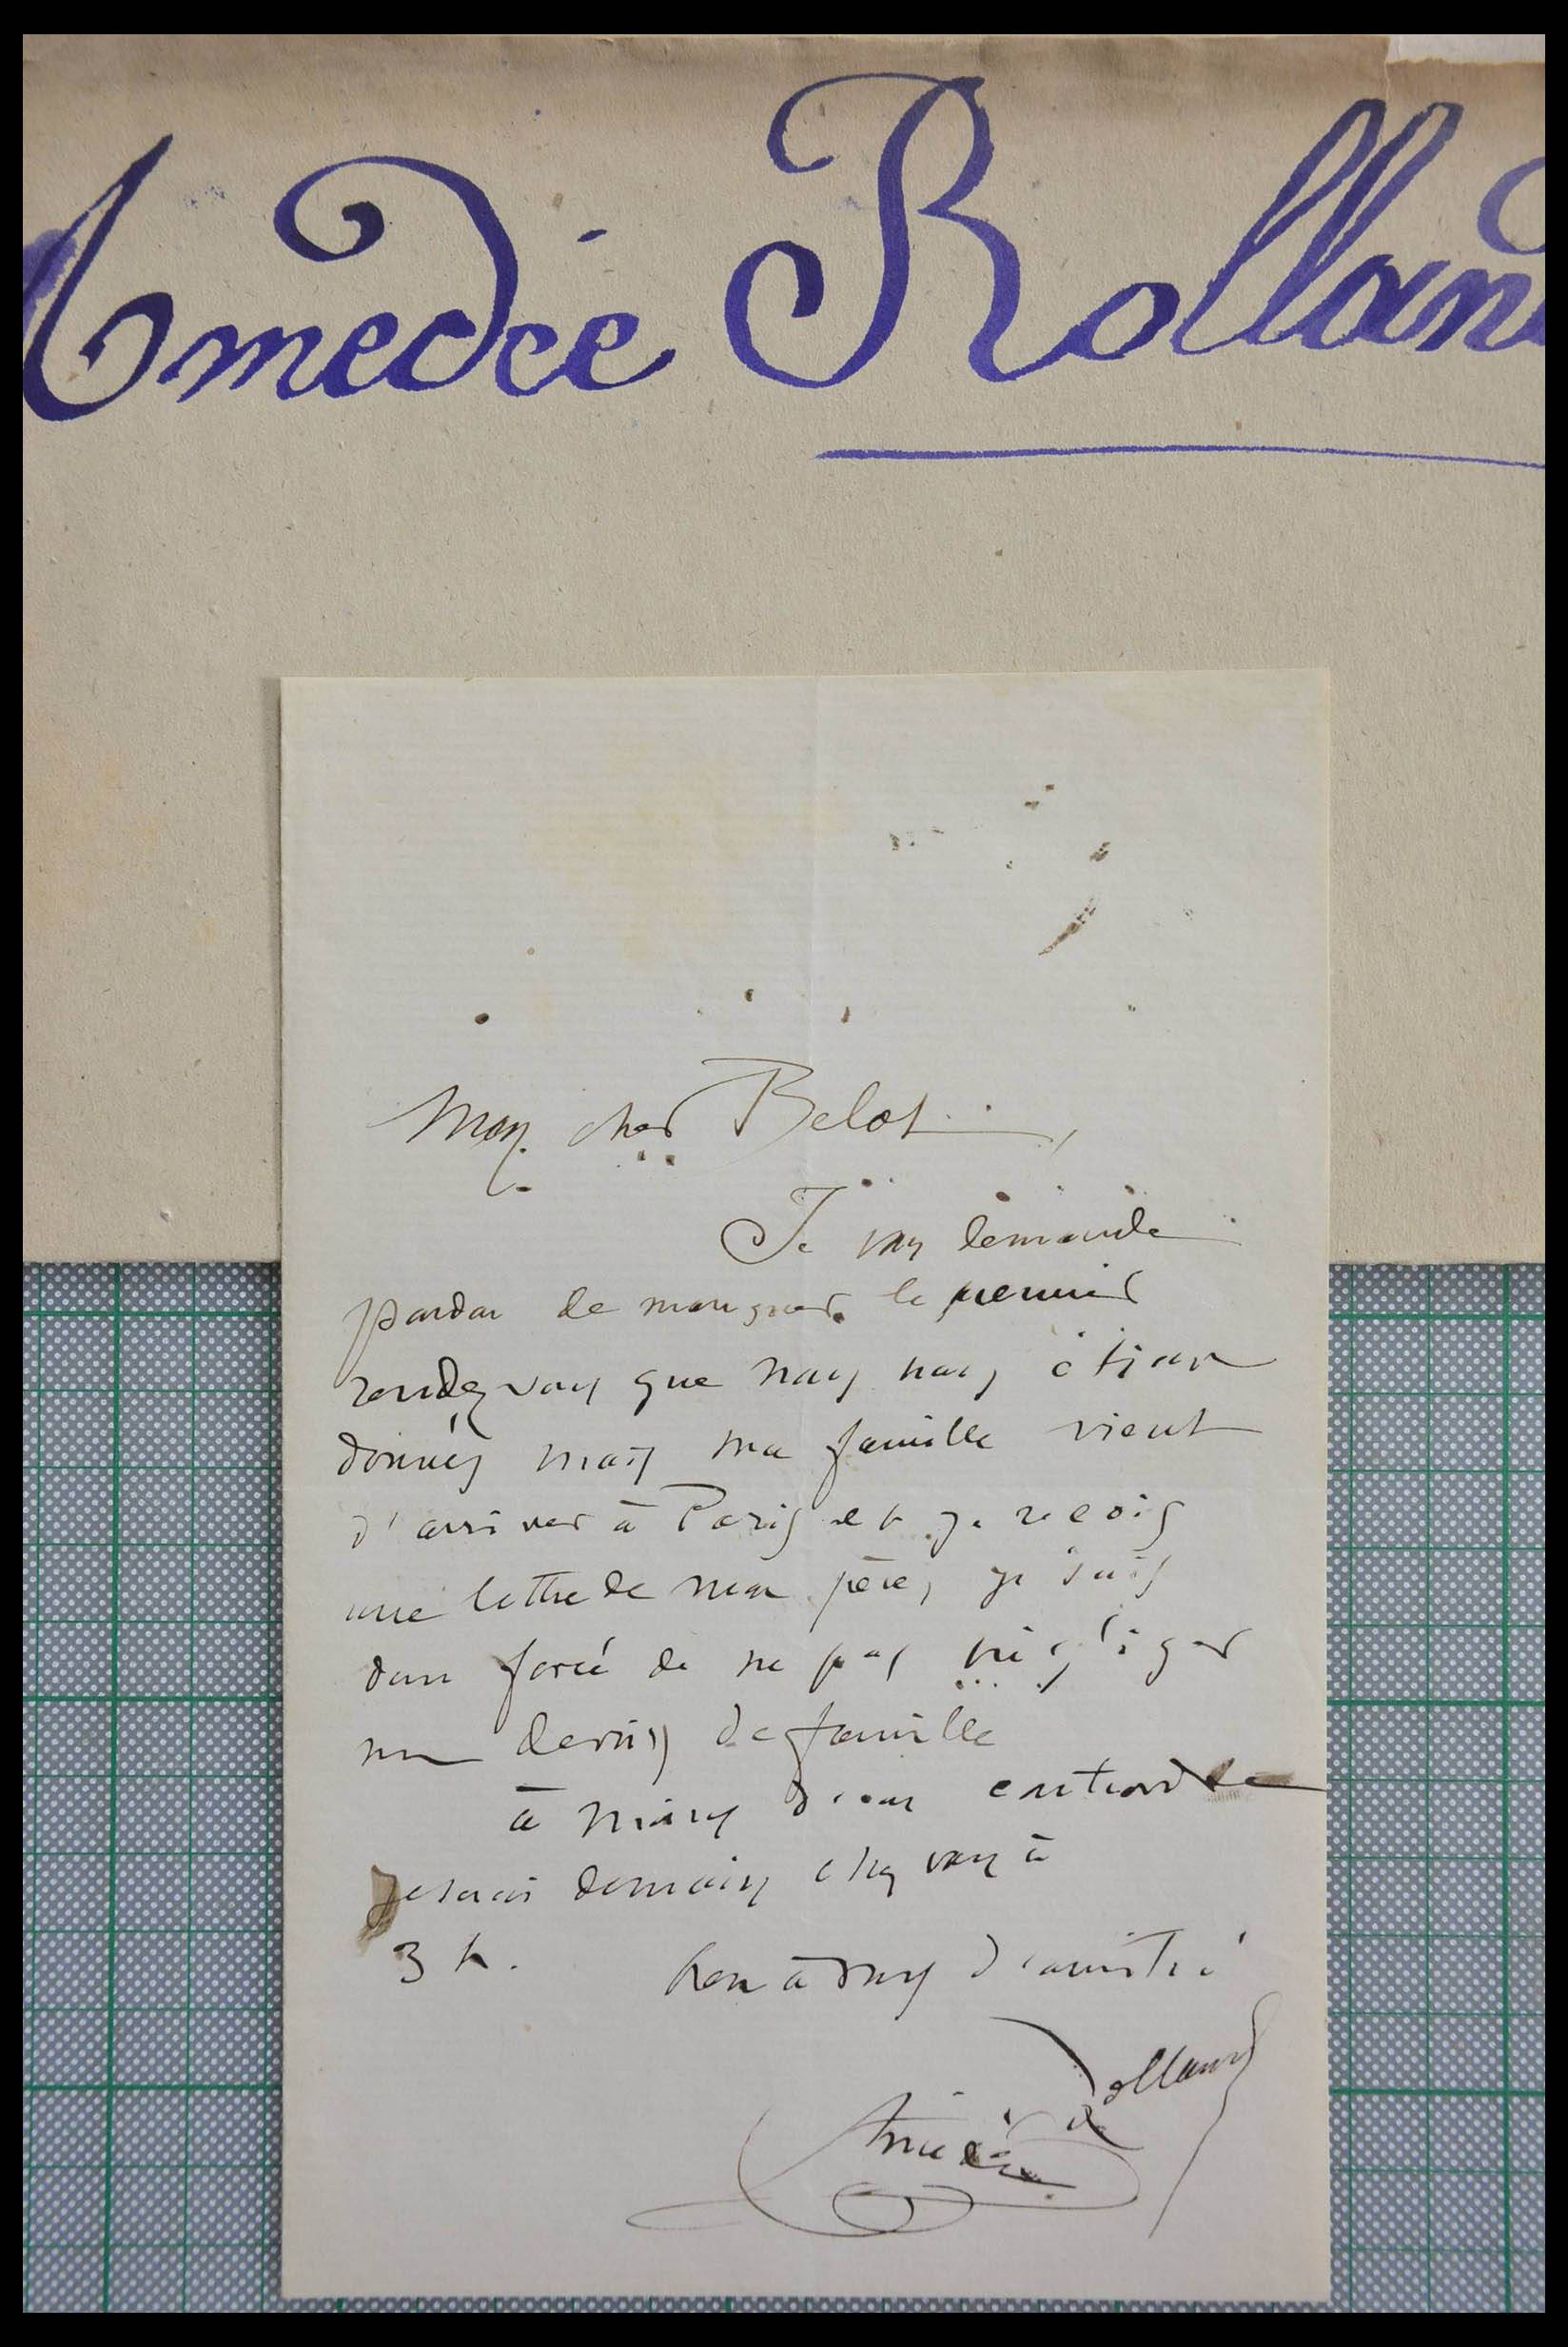 Amedée Rolland
Mon cher Belot,
Je vous demande
pardon de manquer le premier
rendez vous que nous nous étions
donnés mais ma famille vient
d'arriver à Paris et je reçois
une lettre de mon père, je suis
donc forcé de ne pas négliger
mes devoirs de famille
à moins d'un contrordre
je serai demain chez vous à
3 h. bien à vous d'amitié
Amédée Rolland